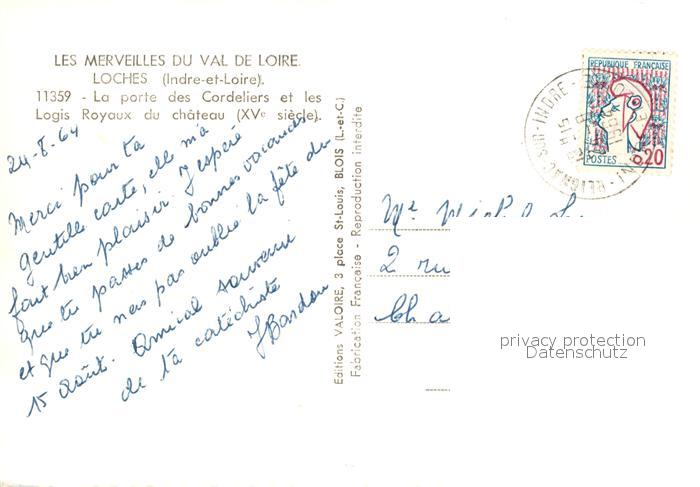 LES MERVEILLES DU VAL DE LOIRE.
LOCHES (Indre-et-Loire).
11359 - La porte des Cordeliers et les
Logis Royaux du château (XVe siècle).
24-8-64
Merci pour ta
gentille carte, elle m'a
fait bien plaisir. J'espère
que tu passes de bonnes vacances
et que tu n'as pas oublié la fête du
15 Août. Amical souvenir
de ta catéchiste
Editions VALOIRE, 3 place St-Louis, BLOIS (L.-et-C.)
Fabrication Française - Reproduction interdite
REPUBLIQUE FRANÇAISE
POSTES 0,20
REIGNAC-SUR-INDRE
2 ru
privacy protection
Datenschutz